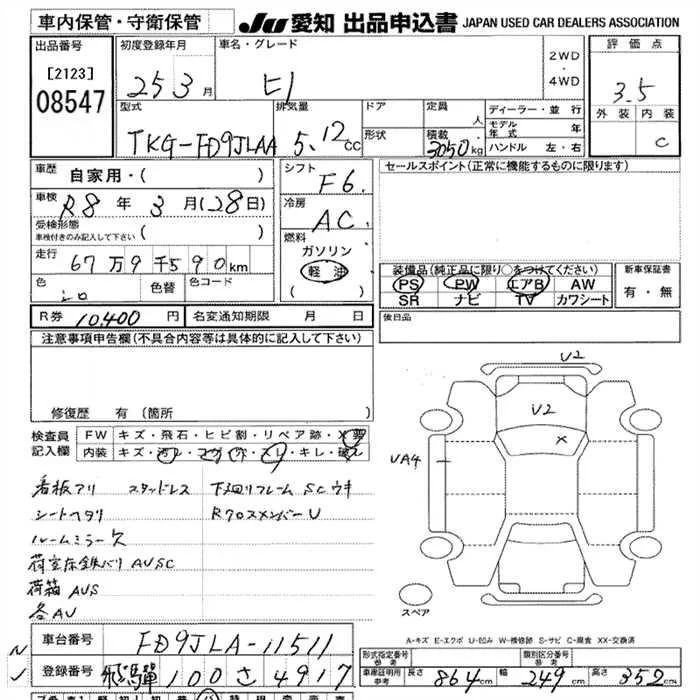 車内保管・守衛保管
JU 愛知 出品申込書 JAPAN USED CAR DEALERS ASSOCIATION
出品番号
[2123]
08547
初度登録年月
25 3 月
車名・グレード
ヒノ
2WD
・
4WD
評価点
3.5
外装 内装
C
型式
TKG-FD9JLAA
排気量
5.12 cc
ドア
形状
定員
人
積載
3050 kg
ディーラー・並行
モデル年式 年
ハンドル 左・右
車歴
自家用・( )
車検
R8 年 3 月(28日)
受検形態
車検付きのみ記入して下さい
走行
67 万 9 千 590 km
色
シロ
色替
色コード
シフト
F6
冷房
AC
燃料
ガソリン
軽油
( )
セールスポイント(正常に機能するものに限ります)
装備品(純正品に限り○をつけてください)
PS PW エアB AW
SR ナビ TV カワシート
新車保証書
有・無
R券 10,400 円
名変通知期限 月 日
後日品
注意事項申告欄(不具合内容等は具体的に記入して下さい)
修復歴 有 (箇所
検査員
記入欄
FW キズ・飛石・ヒビ割・リペア跡・X・要
内装 キズ・汚レ・コゲ・穴・スレ・キレ・破レ
看板アリ スタッドレス 下回リフレームSCウキ
シートヘタリ RクロスメンバーU
ルームミラー欠
荷室床鉄バリAUSC
荷箱AUS
各AU
V2
U2
X
UA4
スペア
A-キズ E-エクボ U-凹み W-補修跡 S-サビ C-腐食 XX-交換済
車台番号 FD9JLA-11511
登録番号 飛騨 100 さ 4917
形式指定番号
参考
類別区分番号
参考
車庫証明用
参考
長さ 864 cm 幅 249 cm 高さ 352 cm